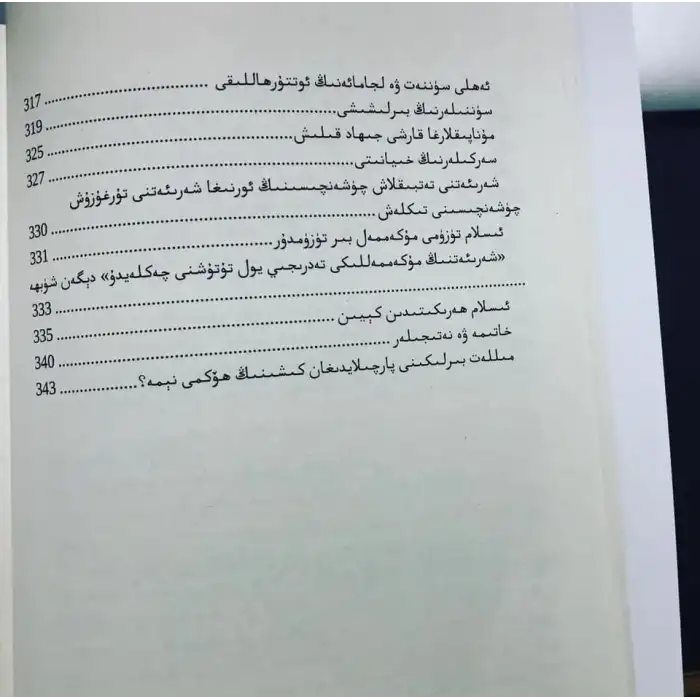 ئەھلى سۈننەت ۋە لجامائەنىڭ ئوتتۇرھاللىقى ........................ 317
سۈننىلەرنىڭ بىرلىشىشى........................ 319
مۇناپىقلارغا قارشى جىھاد قىلىش........................ 325
سەركىلەرنىڭ خىيانىتى........................ 327
شەرىئەتنى تەتبىقلاش چۈشەنچىسىنىڭ ئورنىغا شەرىئەتنى تۇرغۇزۇش
چۈشەنچىسىنى تىكلەش........................ 330
ئىسلام تۈزۈمى مۇكەممەل بىر تۈزۈمدۇر........................ 331
«شەرىئەتنىڭ مۇكەممەللىكى تەدرىجىي يول تۇتۇشنى چەكلەيدۇ» دېگەن شۈبھە
........................ 333
ئىسلام ھەرىكىتىدىن كېيىن ........................ 335
خاتىمە ۋە نەتىجىلەر ........................ 340
مىللەت بىرلىكىنى پارچىلايدىغان كىشىنىڭ ھۆكمى نېمە؟................ 343